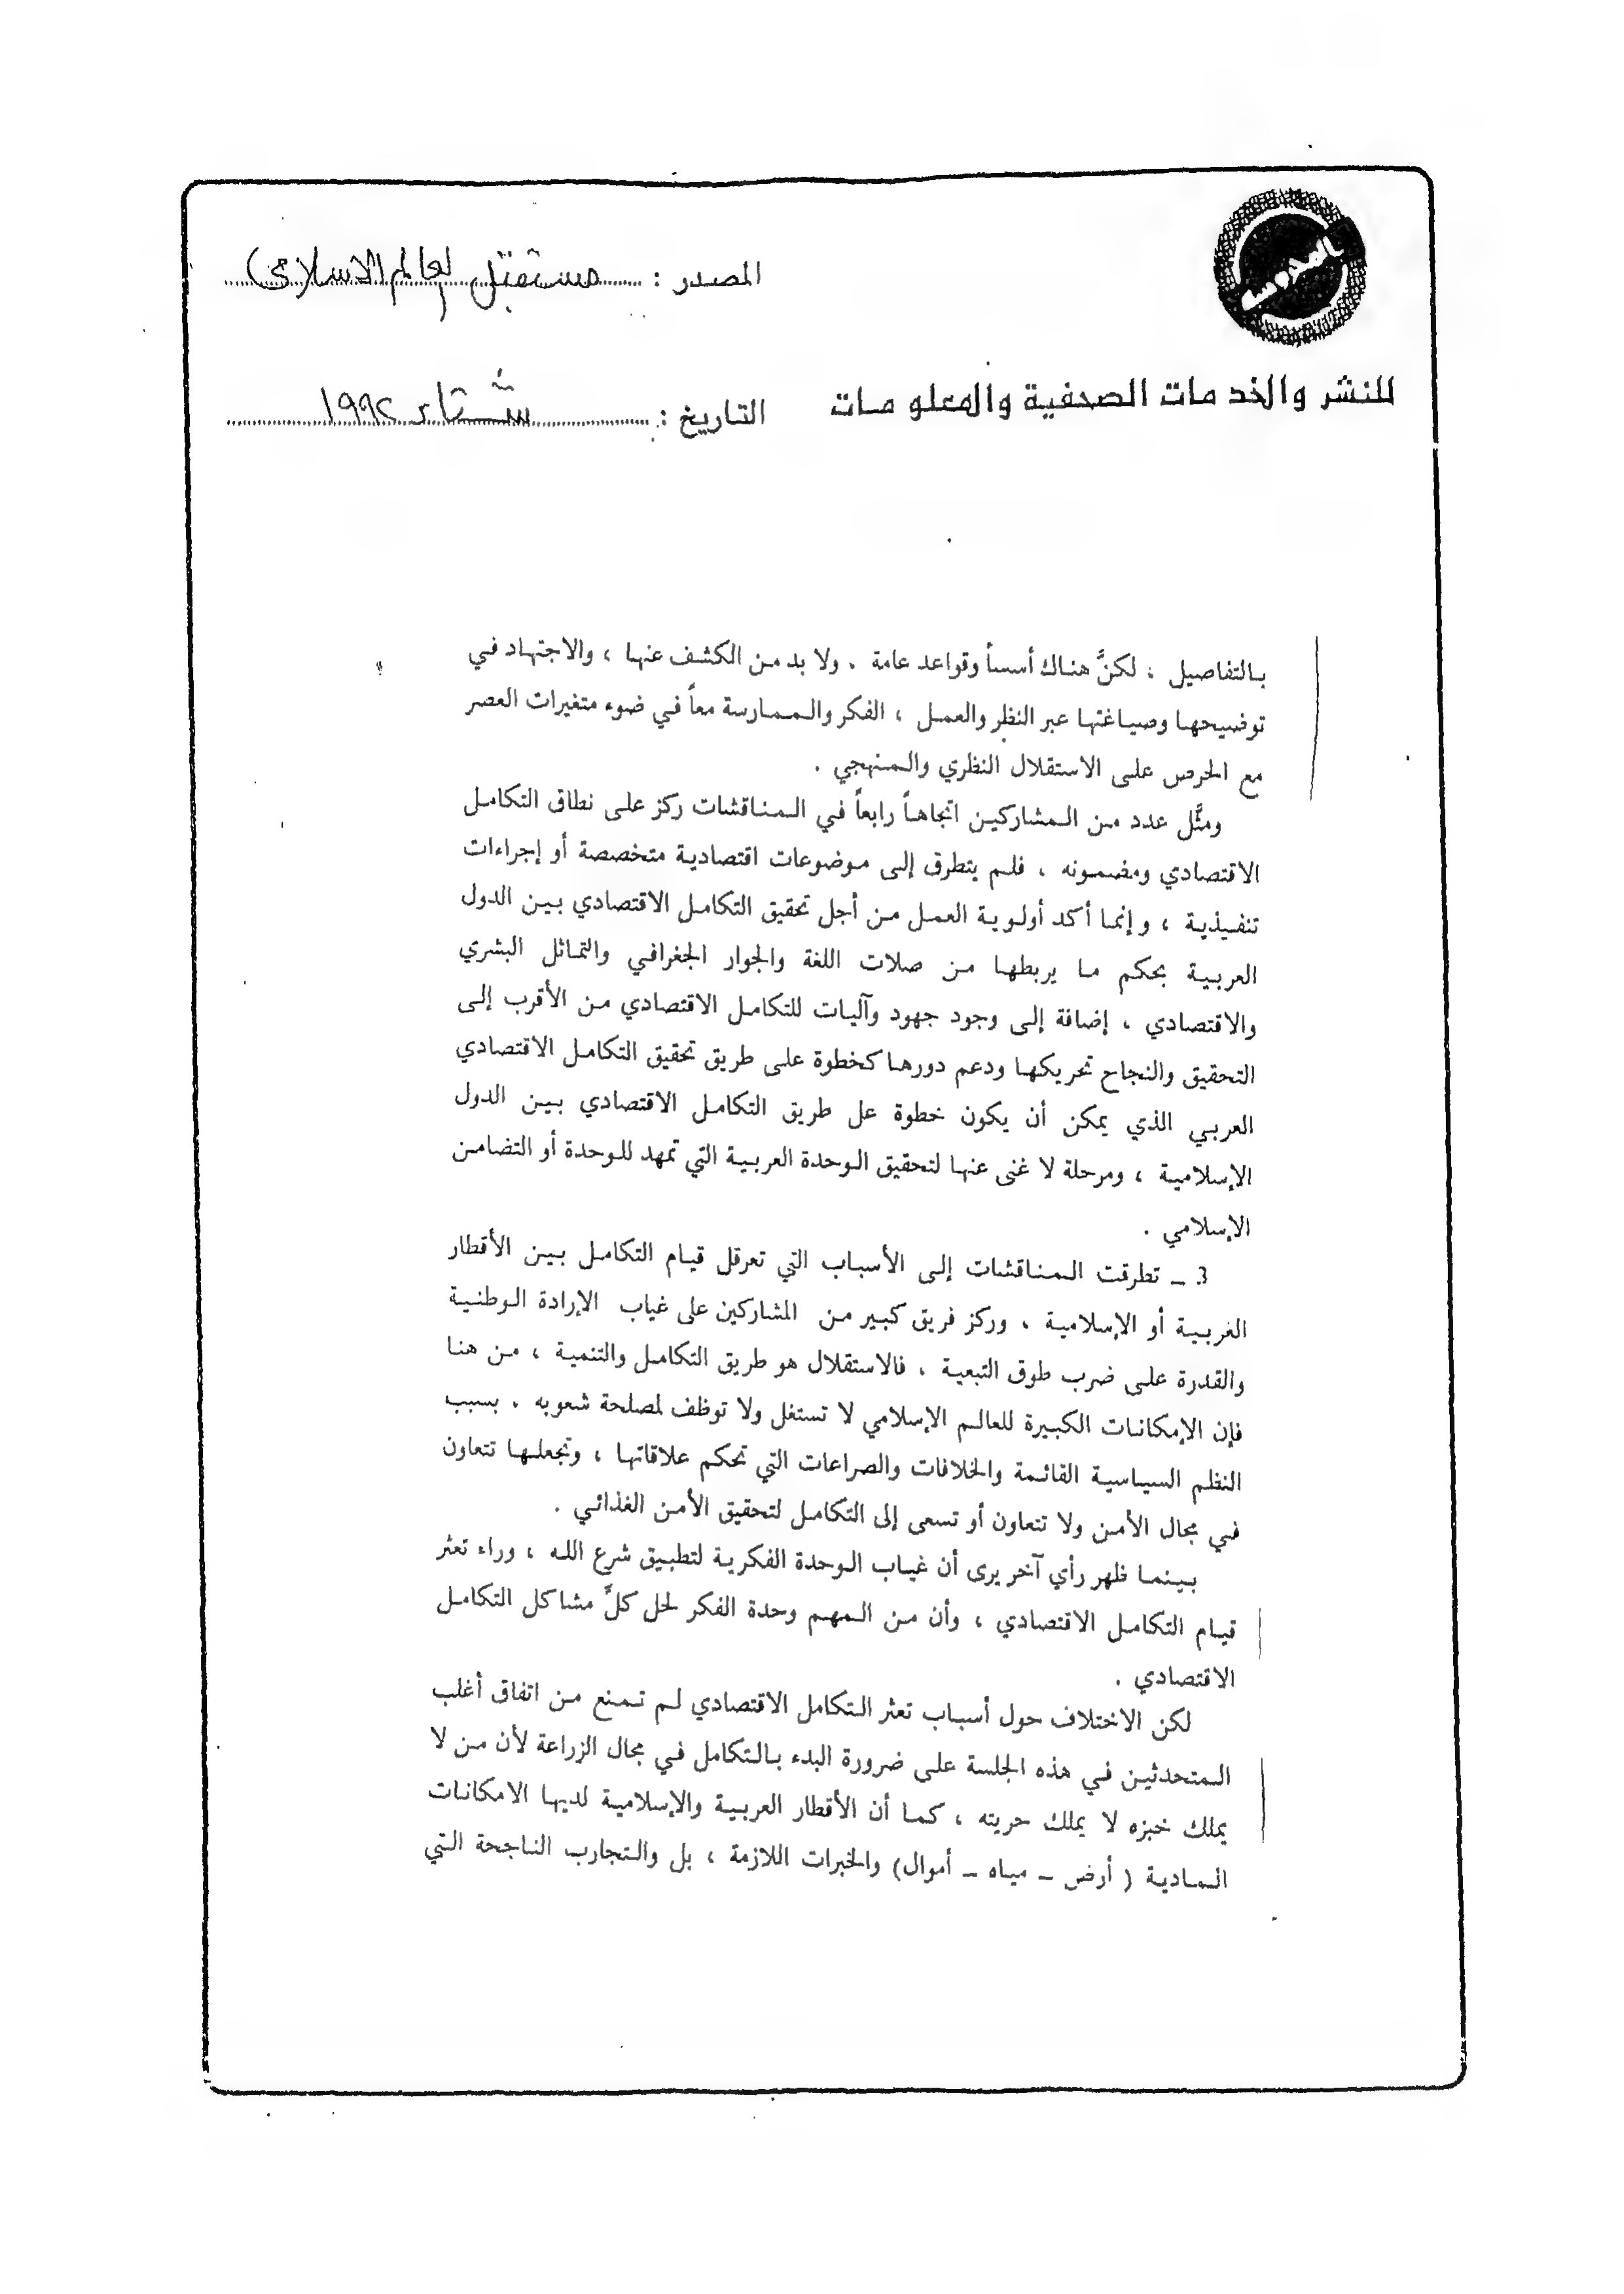 المصدر : مستقبل العالم الاسلامي
للنشر والخدمات الصحفية والمعلومات
التاريخ : شتاء ١٩٩٢
بالتفاصيل ، لكنَّ هناك أسساً وقواعد عامة . ولا بد من الكشف عنها ، والاجتهاد في
توضيحها وصياغتها عبر النظر والعمل ، الفكر والممارسة معاً في ضوء متغيرات العصر
مع الحرص على الاستقلال النظري والمنهجي .
ومثَّل عدد من المشاركين اتجاهاً رابعاً في المناقشات ركز على نطاق التكامل
الاقتصادي ومضمونه ، فلم يتطرق إلى موضوعات اقتصادية متخصصة أو إجراءات
تنفيذية ، وإنما أكد أولوية العمل من أجل تحقيق التكامل الاقتصادي بين الدول
العربية بحكم ما يربطها من صلات اللغة والجوار الجغرافي والتماثل البشري
والاقتصادي ، إضافة إلى وجود جهود وآليات للتكامل الاقتصادي من الأقرب إلى
التحقيق والنجاح تحريكها ودعم دورها كخطوة على طريق تحقيق التكامل الاقتصادي
العربي الذي يمكن أن يكون خطوة عل طريق التكامل الاقتصادي بين الدول
الإسلامية ، ومرحلة لا غنى عنها لتحقيق الوحدة العربية التي تمهد للوحدة أو التضامن
الإسلامي .
3 ـ تطرقت المناقشات إلى الأسباب التي تعرقل قيام التكامل بين الأقطار
العربية أو الإسلامية ، وركز فريق كبير من المشاركين على غياب الإرادة الوطنية
والقدرة على ضرب طوق التبعية ، فالاستقلال هو طريق التكامل والتنمية ، من هنا
فإن الإمكانات الكبيرة للعالم الإسلامي لا تستغل ولا توظف لمصلحة شعوبه . بسبب
النظم السياسية القائمة والخلافات والصراعات التي تحكم علاقاتها ، وتجعلها تتعاون
في مجال الأمن ولا تتعاون أو تسعى إلى التكامل لتحقيق الأمن الغذائي .
بينما ظهر رأي آخر يرى أن غياب الوحدة الفكرية لتطبيق شرع الله ، وراء تعثر
قيام التكامل الاقتصادي ، وأن من المهم وحدة الفكر لحل كلِّ مشاكل التكامل
الاقتصادي .
لكن الاختلاف حول أسباب تعثر التكامل الاقتصادي لم تمنع من اتفاق أغلب
المتحدثين في هذه الجلسة على ضرورة البدء بالتكامل في مجال الزراعة لأن من لا
يملك خبزه لا يملك حريته ، كما أن الأقطار العربية والإسلامية لديها الامكانات
المادية ( أرض ـ مياه ـ أموال) والخبرات اللازمة ، بل والتجارب الناجحة التي